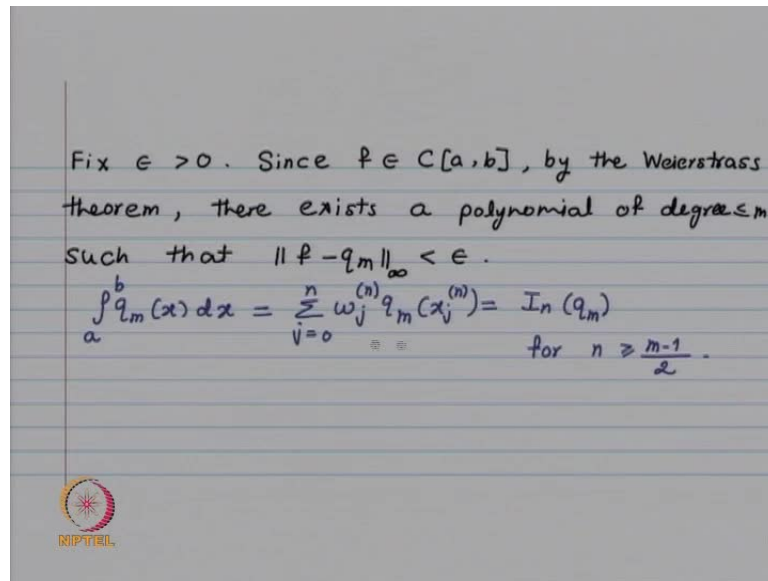 Fix ∈ > 0. Since f ∈ C[a,b], by the Weierstrass
theorem, there exists a polynomial of degree ≤ m
such that ‖f - q_m‖_∞ < ∈.
∫_a^b q_m(x) dx = Σ_{j=0}^{n} ω_j^{(n)} q_m(x_j^{(n)}) = I_n(q_m)
for n ≥ \frac{m-1}{2}.
NPTEL